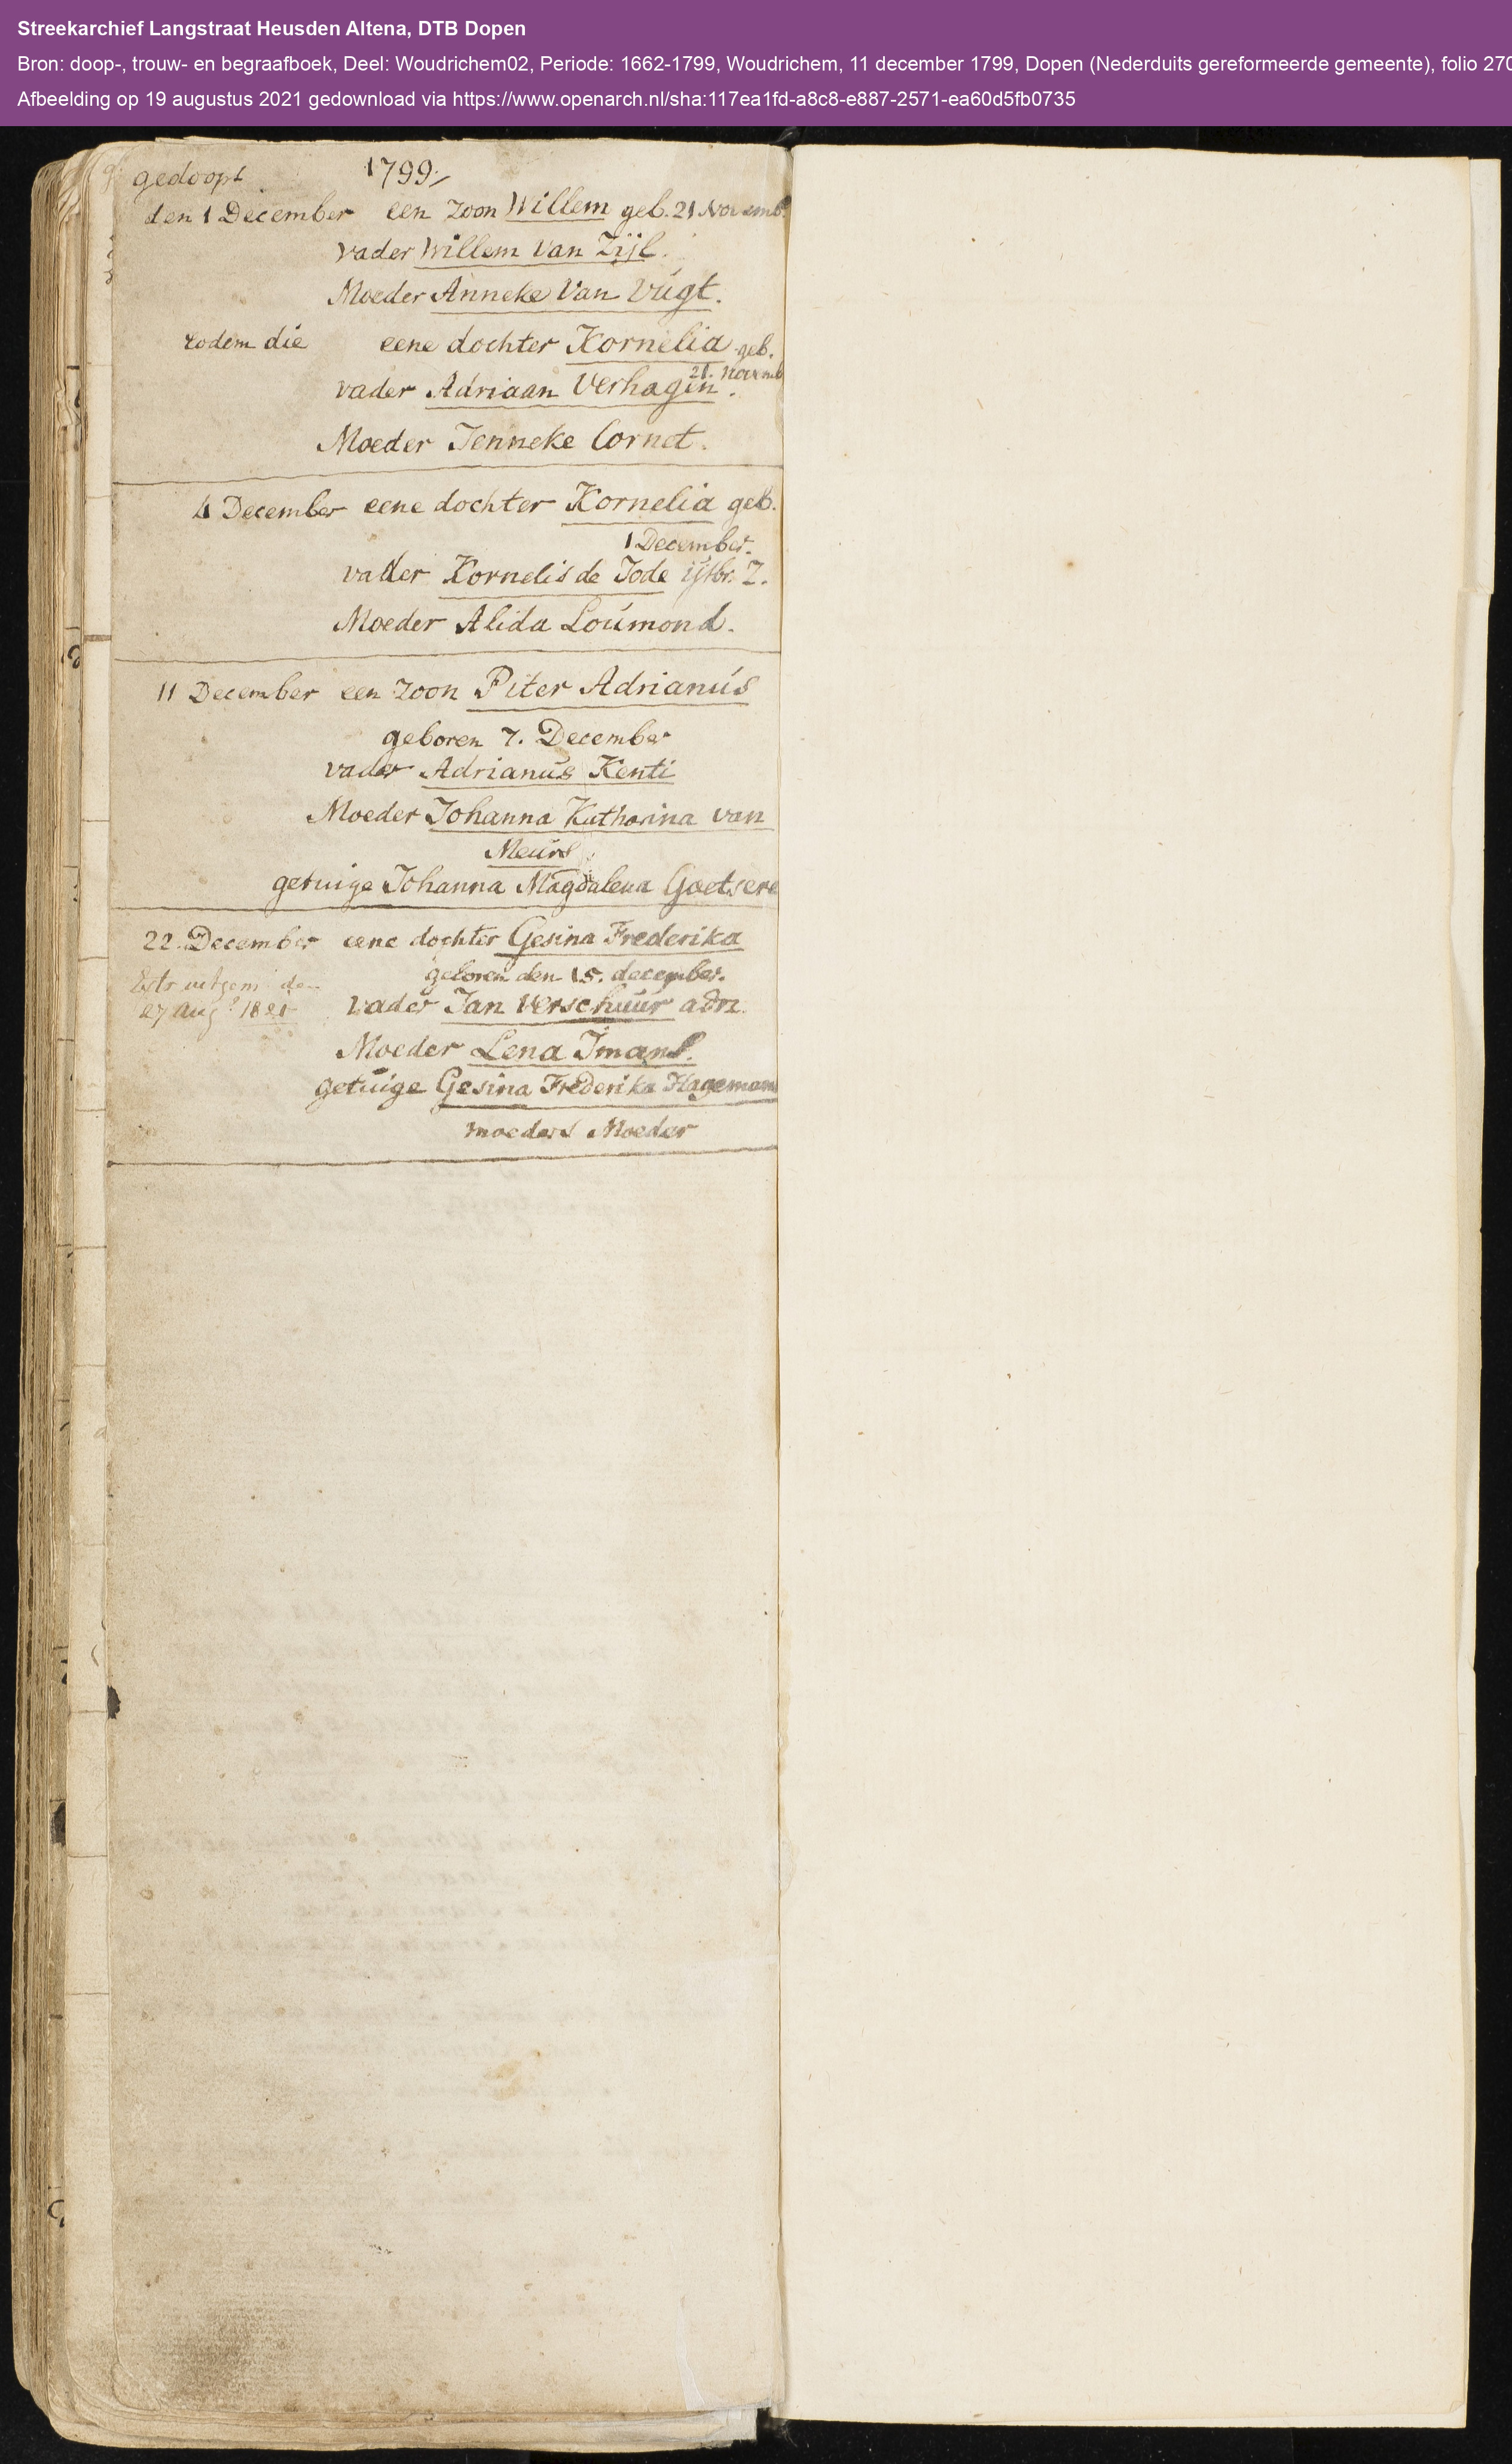 Streekarchief Langstraat Heusden Altena, DTB Dopen
Bron: doop-, trouw- en begraafboek, Deel: Woudrichem02, Periode: 1662-1799, Woudrichem, 11 december 1799, Dopen (Nederduits gereformeerde gemeente), folio 270
Afbeelding op 19 augustus 2021 gedownload via https://www.openarch.nl/sha:117ea1fd-a8c8-e887-2571-ea60d5fb0735
gedoopt 1799
den 1 December een zoon Willem geb. 21 Novemb.
vader Willem Van Zijl.
Moeder Anneke Van Vúgt.
Eodem die eene dochter Kornelia geb.
21. Novemb
vader Adriaan Verhagen.
Moeder Jenneke Cornet.
4 December eene dochter Kornelia geb.
1 December.
vader Kornelis de Jode ijsbr. Z.
Moeder Alida Loúmond.
11 December een zoon Piter Adrianús
geboren 7. December
vader Adrianús Kenti
Moeder Johanna Katharina van
Meúrs
getuige Johanna Magdalena Goetsere
22. December eene dochter Gesina Frederika
geboren den 15. december.
Extr uetgem den
27 Aug 1821
vader Jan Verschuúr adrz.
Moeder Lena Imans.
getúige Gesina Frederika Hageman
moeders Moeder